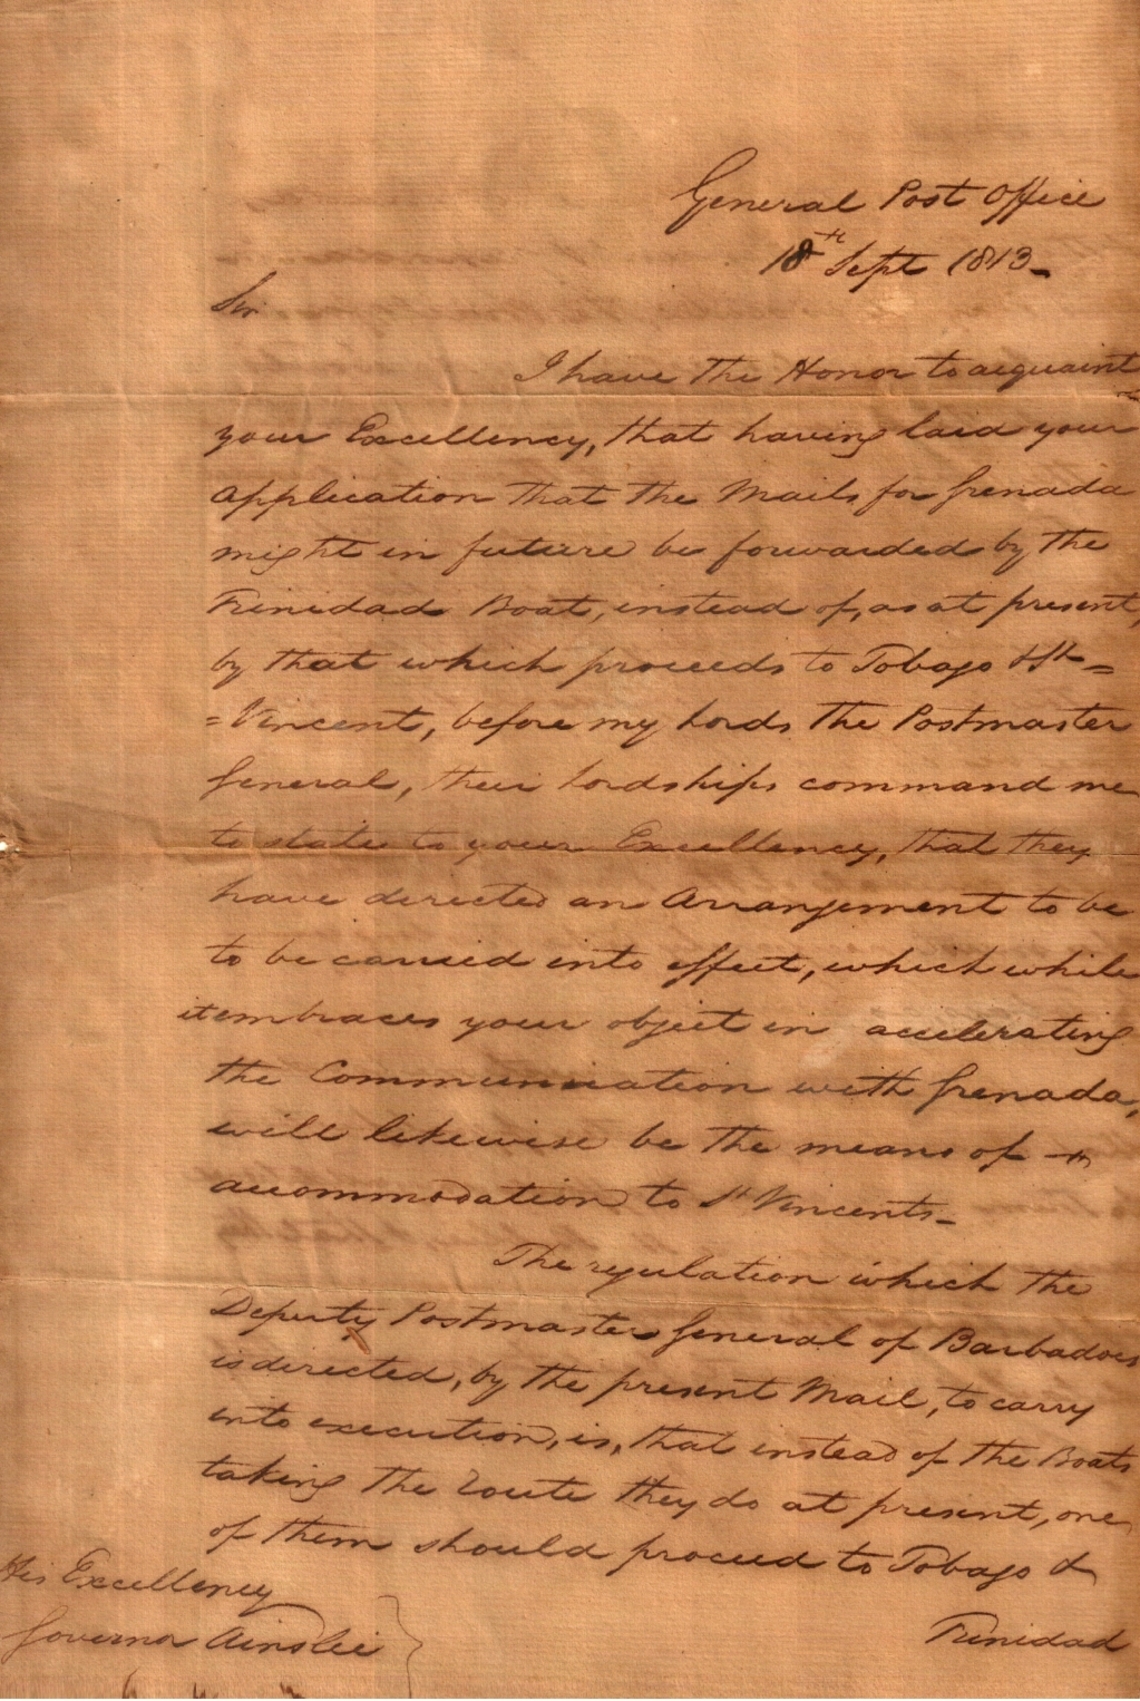 General Post Office
18th Sept 1813_
Sir
I have the Honor to acquaint
your Excellency, that having laid your
application that the Mails for Grenada
might in future be forwarded by the
Trinidad Boat, instead of, as at present,
by that which proceeds to Tobago & St =
=Vincent, before my Lords the Postmaster
General, their Lordships command me
to state to your Excellency, that they
have directed an Arrangement to be
to be carried into effect, which while
it embraces your object in accelerating
the Communication with Grenada,
will likewise be the means of
accommodation to St Vincents_
The regulation which the
Deputy Postmaster General of Barbadoes
is directed, by the present Mail, to carry
into execution, is, that instead of the Boats
taking the route they do at present, one
of them should proceed to Tobago &
His Excellency
Governor Ainslie
Trinidad